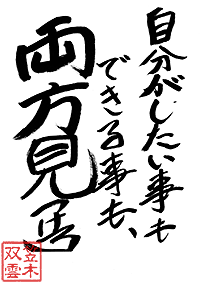 自分がしたい事も
できる事も、
両方見す
笠木
双雲